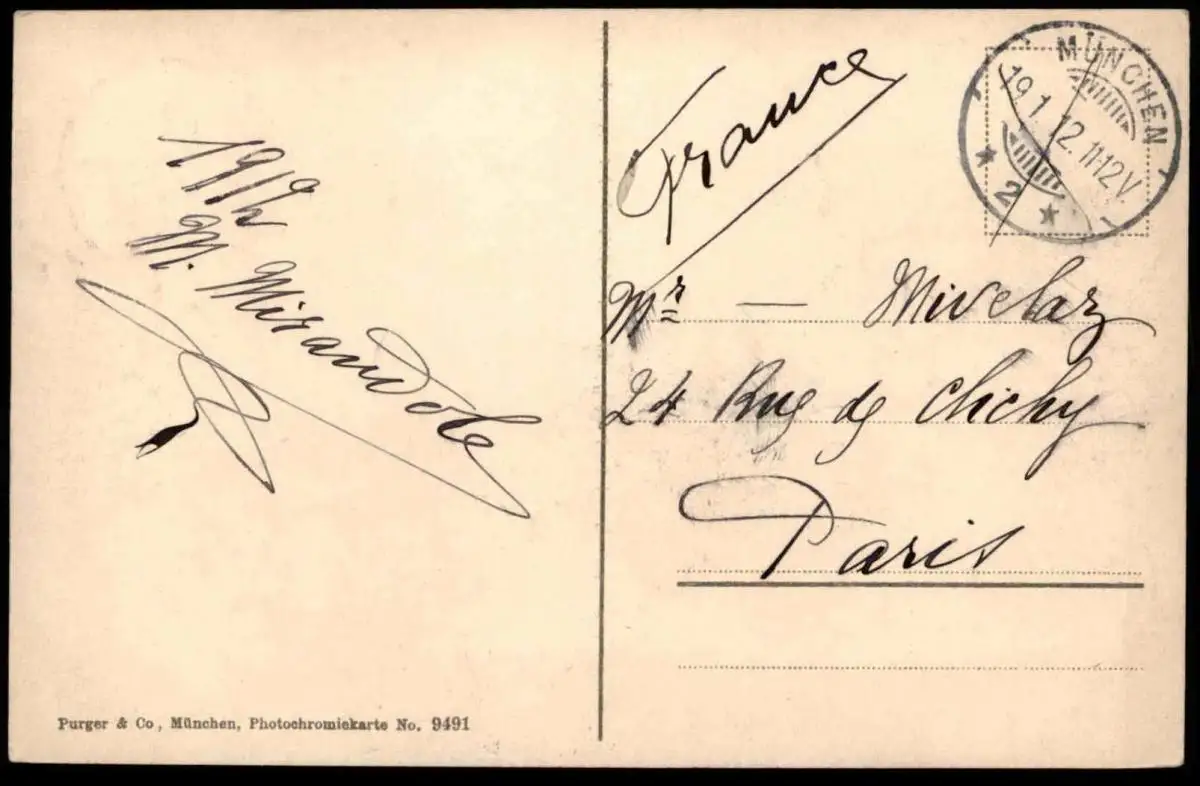 19 1/12
M. Mirandole
Purger & Co, München, Photochromiekarte No. 9491
France
MÜNCHEN
19.1.12.11-12V.
* 2 *
Mr — Mivelaz
24 Rue de Clichy
Paris